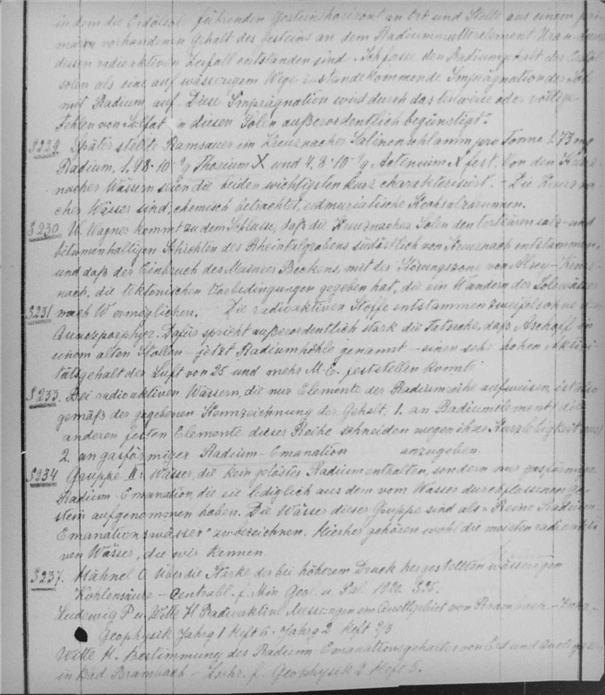 in dem die Erdölsole führenden Gesteinshorizont an Ort und Stelle aus einem pri-
mären vorhandenen Gehalt des Gesteins an dem Radiummutterelement Uran durch
dessen radioaktiven Zerfall entstanden sind. Ich fasse den Radiumgehalt der Erdöl
solen als eine auf wässrigem Wege zustandekommende Imprägnation der Sole
mit Radium auf. Diese Imprägnation wird durch das teilweise oder völlige
Fehlen von Sulfat in diesen Solen außerordentlich begünstigt."
S 229. Später stellte Ramsauer im Kreuznacher Salinenschlamm pro Tonne 1.73 mg
Radium, 1,48·10 g Thorium X und 4,8·10 g Actinium X fest. Von den Kreuz-
nacher Wässern seien die beiden wichtigsten kurz charakterisiert. - Die Kreuzna-
cher Wässer sind, chemisch betrachtet, erdmuriatische Kochsalzquellen.
S 230 W. Wagner kommt zu dem Schlusse, daß die Kreuznacher Solen den tertiären salz- und
bitumenhaltigen Schichten des Rheintalgrabens südöstlich von Kreuznach entstammen,
und daß der Einbruch des Mainzer Beckens, mit der Störungszone von Alzey - Kreuz-
nach, die tektonischen Vorbedingungen gegeben hat, die ein Wandern der Solewässer
S 231 nach W ermöglichen. Die radioaktiven Stoffe entstammen zweifelsohne dem
Quarzporphyr. Dafür spricht außerordentlich stark die Tatsache, daß Aschoff in
einem alten Stollen - jetzt Radiumhöhle genannt - einen sehr hohen Aktivi-
tätsgehalt der Luft von 25 und mehr M.E. feststellen konnte.
S 233. Bei radioaktiven Wässern, die nur Elemente der Radiumreihe aufweisen, ist also
gemäß der gegebenen Kennzeichnung der Gehalt, 1. an Radiumelement (die
anderen festen Elemente dieser Reihe scheiden wegen ihrer Kurzlebigkeit aus)
2. an gasförmiger Radium-Emanation anzugeben.
S 234 Gruppe II: Wässer, die kein gelöstes Radium enthalten, sondern nur gasförmige
Radium-Emanation, die sie lediglich aus dem vom Wasser durchflossenen Ge-
stein aufgenommen haben. Die Wässer dieser Gruppe sind als „Reine Radium-
Emanationswässer" zu bezeichnen. Hierher gehören wohl die meisten radioakti-
ven Wässer, die wir kennen.
S 237. Hähnel O. Über die Stärke der bei höherem Druck hergestellten wässrigen
Kohlensäure - Centralbl. f. Min. Geol. u. Pal. 1920. S 25.
Ludewig P. u. Witte H. Radioaktive Messungen im Quellgebiet von Brambach - Zschr.
Geophysik Jahrg 1 Heft 5 - Jahrg 2 Heft 2/3
Witte H. Bestimmung des Radium-Emanationsgehaltes von Erd und Quellgasen
in Bad Brambach - Zschr. f. Geophysik 2. Heft 5.